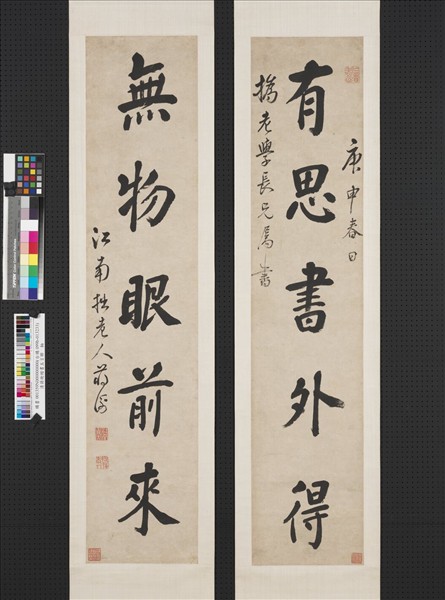 庚申春日
有思書外得
撝老學長兄屬書
無物眼前來
江南拙老人蔣衡